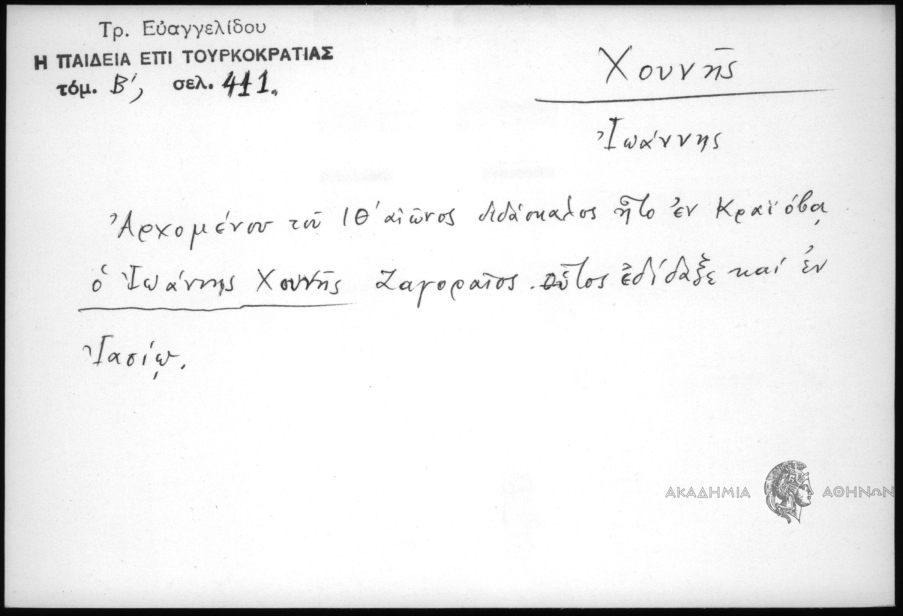 Τρ. Εὐαγγελίδου
Η ΠΑΙΔΕΙΑ ΕΠΙ ΤΟΥΡΚΟΚΡΑΤΙΑΣ
τόμ. Β', σελ. 411.
Χουνῆς
Ἰωάννης
Ἀρχομένου τοῦ ΙΘ' αἰῶνος διδάσκαλος ἦτο ἐν Κραϊόβᾳ
ὁ Ἰωάννης Χουνῆς Ζαγοραῖος. οὗτος ἐδίδαξε καὶ ἐν
Ἰασίῳ.
ΑΚΑΔΗΜΙΑ ΑΘΗΝΩΝ